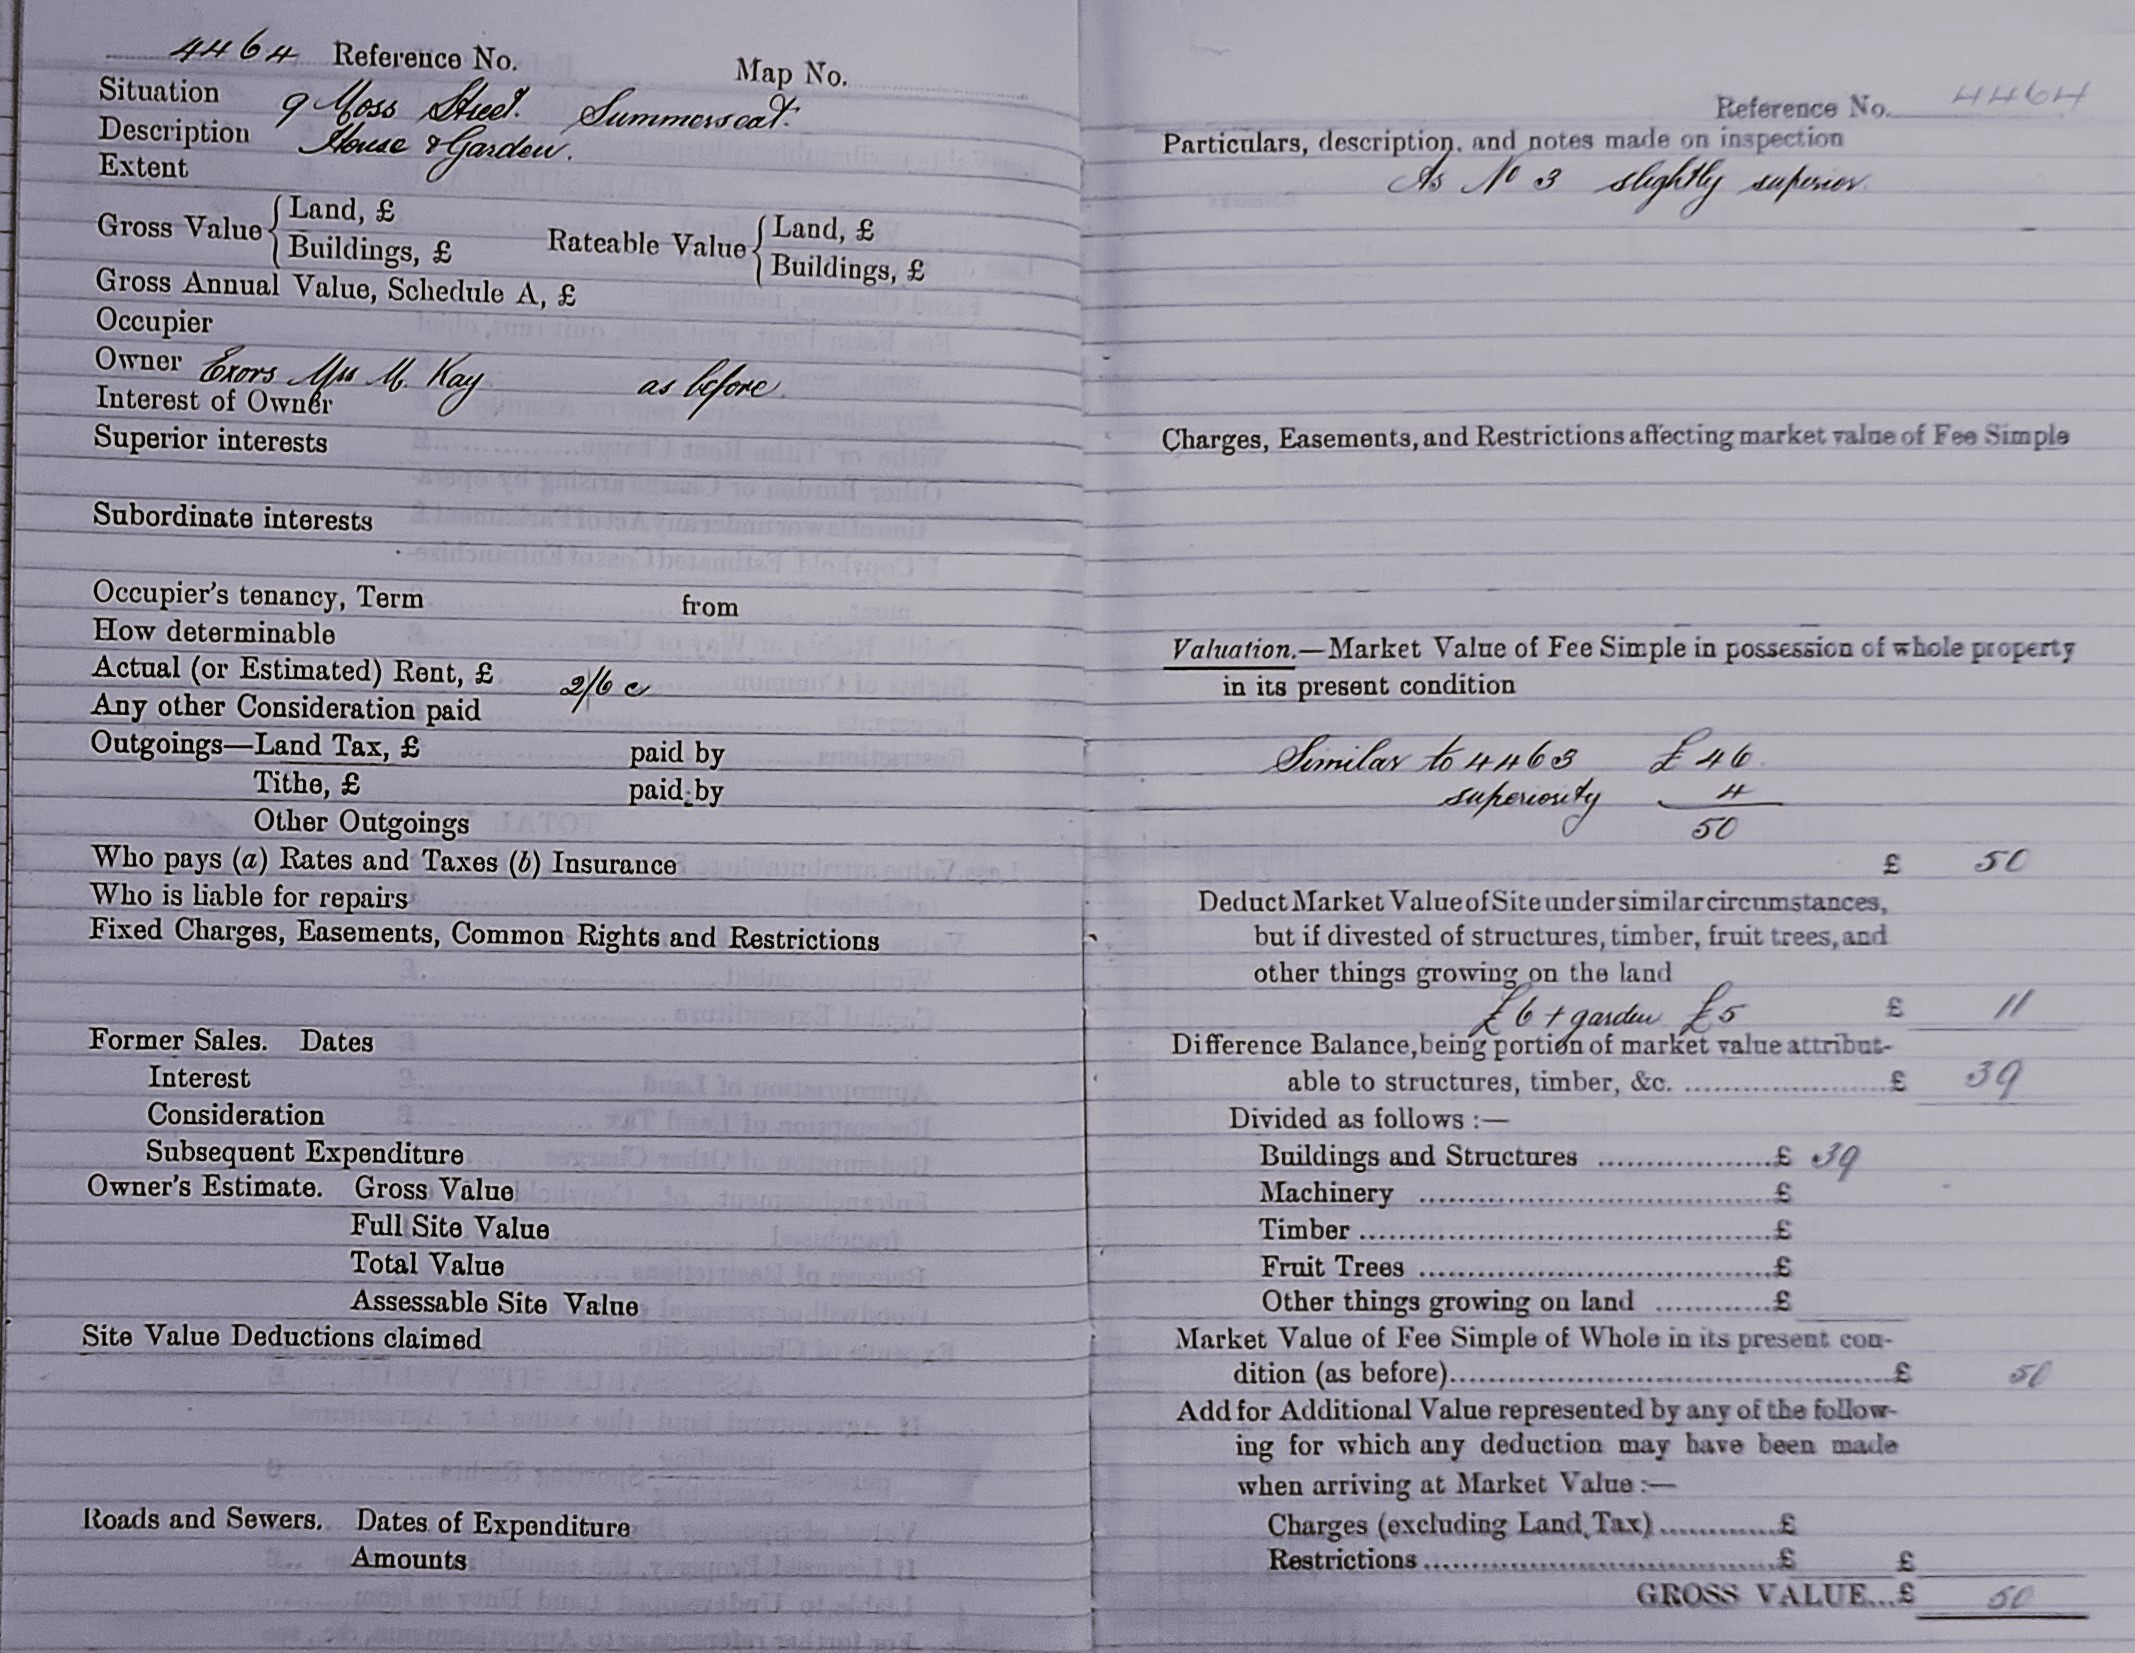 4464 Reference No. Map No.
Situation 9 Moss Street. Summerseat.
Description House & Garden.
Extent
Gross Value { Land, £
Buildings, £
Rateable Value { Land, £
Buildings, £
Gross Annual Value, Schedule A, £
Occupier
Owner Exors Mrs M. Kay as before.
Interest of Owner
Superior interests
Subordinate interests
Occupier's tenancy, Term from
How determinable
Actual (or Estimated) Rent, £ 2/6 c
Any other Consideration paid
Outgoings—Land Tax, £ paid by
Tithe, £ paid by
Other Outgoings
Who pays (a) Rates and Taxes (b) Insurance
Who is liable for repairs
Fixed Charges, Easements, Common Rights and Restrictions
Former Sales. Dates
Interest
Consideration
Subsequent Expenditure
Owner's Estimate. Gross Value
Full Site Value
Total Value
Assessable Site Value
Site Value Deductions claimed
Roads and Sewers. Dates of Expenditure
Amounts
Reference No. 4464
Particulars, description, and notes made on inspection
As No 3 slightly superior
Charges, Easements, and Restrictions affecting market value of Fee Simple
Valuation.—Market Value of Fee Simple in possession of whole property
in its present condition
Similar to 4463 £46.
superiority 4
50
£ 50
Deduct Market Value of Site under similar circumstances,
but if divested of structures, timber, fruit trees, and
other things growing on the land
£6 + garden £5 £ 11
Difference Balance, being portion of market value attribut-
able to structures, timber, &c. .................... £ 39
Divided as follows :—
Buildings and Structures ..................£ 39
Machinery ....................................£
Timber ..........................................£
Fruit Trees ....................................£
Other things growing on land ............£
Market Value of Fee Simple of Whole in its present con-
dition (as before)..............................................£ 50
Add for Additional Value represented by any of the follow-
ing for which any deduction may have been made
when arriving at Market Value :—
Charges (excluding Land Tax) ............£
Restrictions ......................................£ £
GROSS VALUE...£ 50